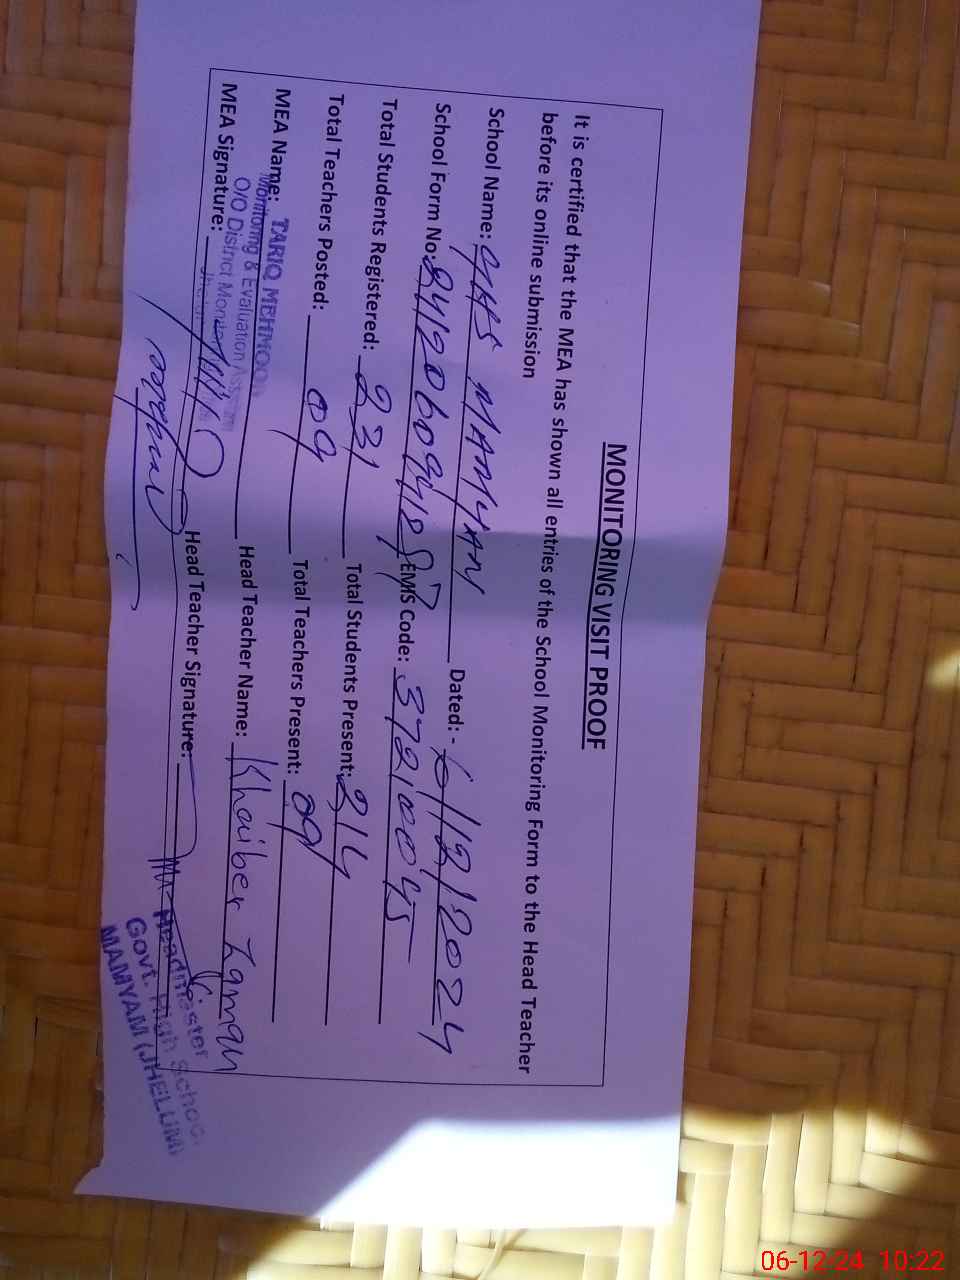 MONITORING VISIT PROOF
It is certified that the MEA has shown all entries of the School Monitoring Form to the Head Teacher
before its online submission
School Name: GHS MAMYAM Dated:- 6/12/2024
School Form No: EMIS Code: 37210045
Total Students Registered: 231 Total Students Present: 214
Total Teachers Posted: 09 Total Teachers Present: 09
MEA Name: TARIQ MEHMOOD Head Teacher Name: Khaiber Zaman
Monitoring & Evaluation
O/O District
MEA Signature: Head Teacher Signature:
Headmaster
Govt. High School
MAMYAM (JHELUM)
06-12-24 10:22